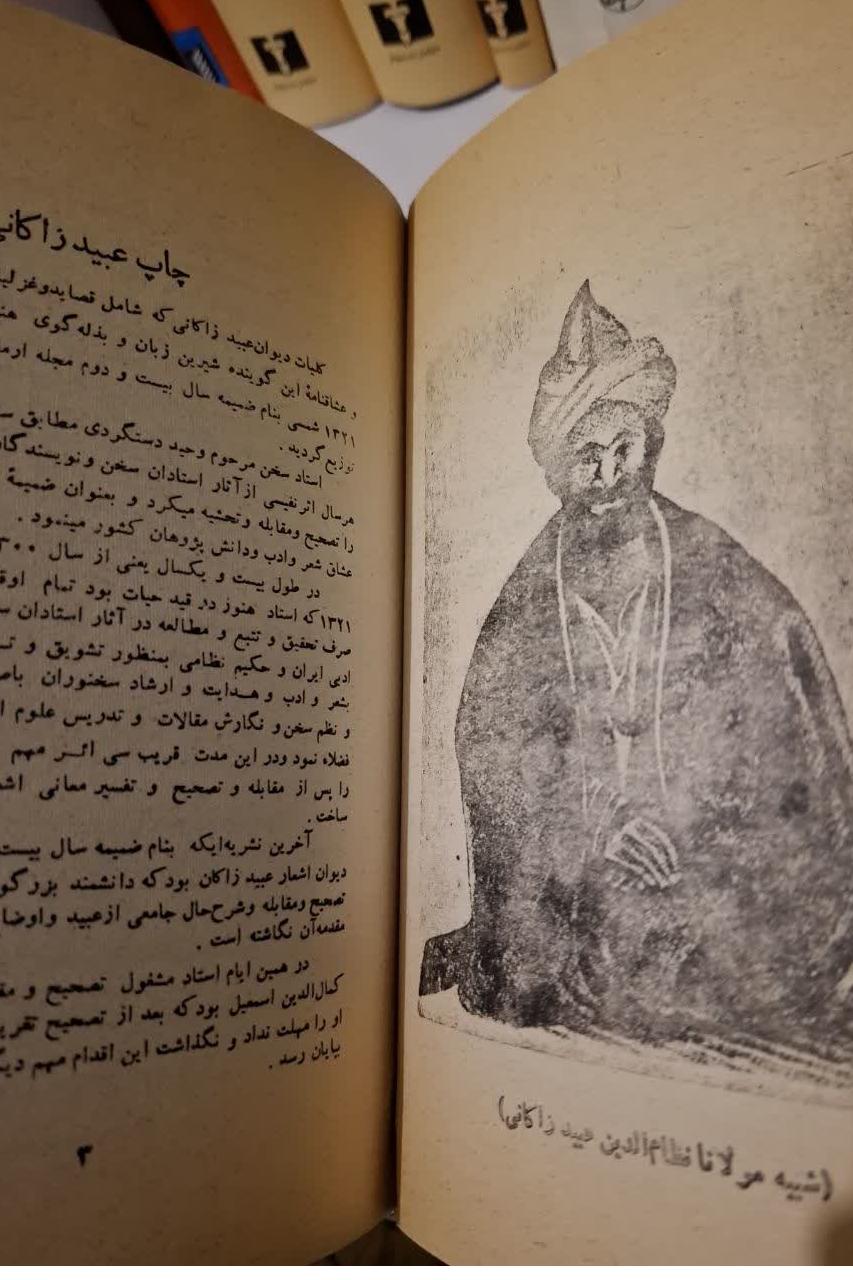 چاپ عبید زاکانی
کلیات دیوان عبید زاکانی که شامل قصاید وغزلی
و عشاقنامهٔ این گوینده شیرین زبان و بذله گوی
۱۳۲۱ شمسی بنام ضمیمه سال بیست و دوم مجله
توزیع گردید .
استاد سخن مرحوم وحید دستگردی مطابق
هرسال اثر نفیسی از آثار استادان سخن و نویسندگان
را تصحیح ومقابله وتحشیه میکرد و بعنوان ضمیمهٔ
عشاق شعر وادب ودانش پژوهان کشور مینمود .
در طول بیست و یکسال یعنی از سال
۱۳۲۱ که استاد هنوز در قید حیات بود تمام
صرف تحقیق و تتبع و مطالعه در آثار استادان
ادبی ایران و حکیم نظامی بمنظور تشویق و
بشعر و ادب و هدایت و ارشاد سخنوران
و نظم سخن و نگارش مقالات و تدریس علوم
فضلاء نمود ودر این مدت قریب سی اثر مهم
را پس از مقابله و تصحیح و تفسیر معانی
ساخت .
آخرین نشریه‌ایکه بنام ضمیمه سال بیست
دیوان اشعار عبید زاکان بود که دانشمند
تصحیح ومقابله وشرح حال جامعی از عبید
مقدمه آن نگاشته است .
در همین ایام استاد مشغول تصحیح و
کمال‌الدین اسمعیل بود که بعد از تصحیح
او را مهلت نداد و نگذاشت این اقدام مهم
بپایان رسد .
۳
(شبیه مولانا نظام‌الدین عبید زاکانی)